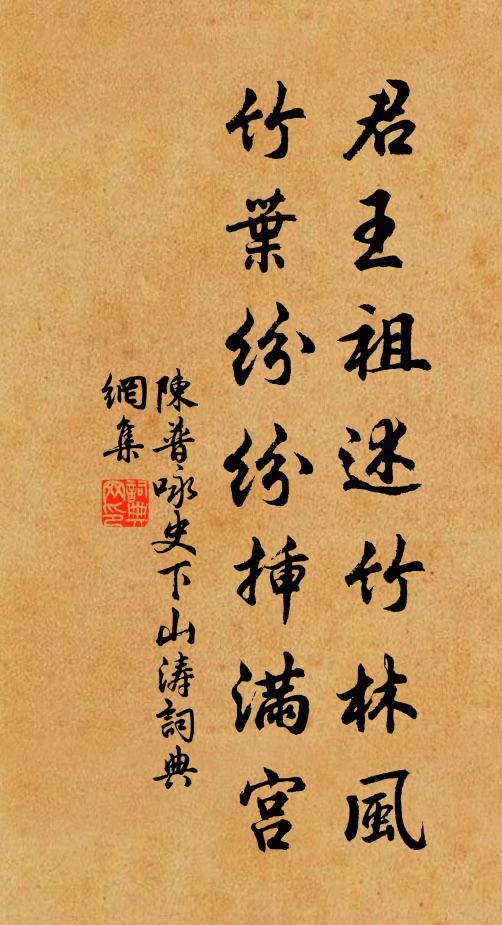 君王祖述竹林風
竹葉紛紛挿滿宮
陳普咏史下山濤詞典
網集
詞典
网印